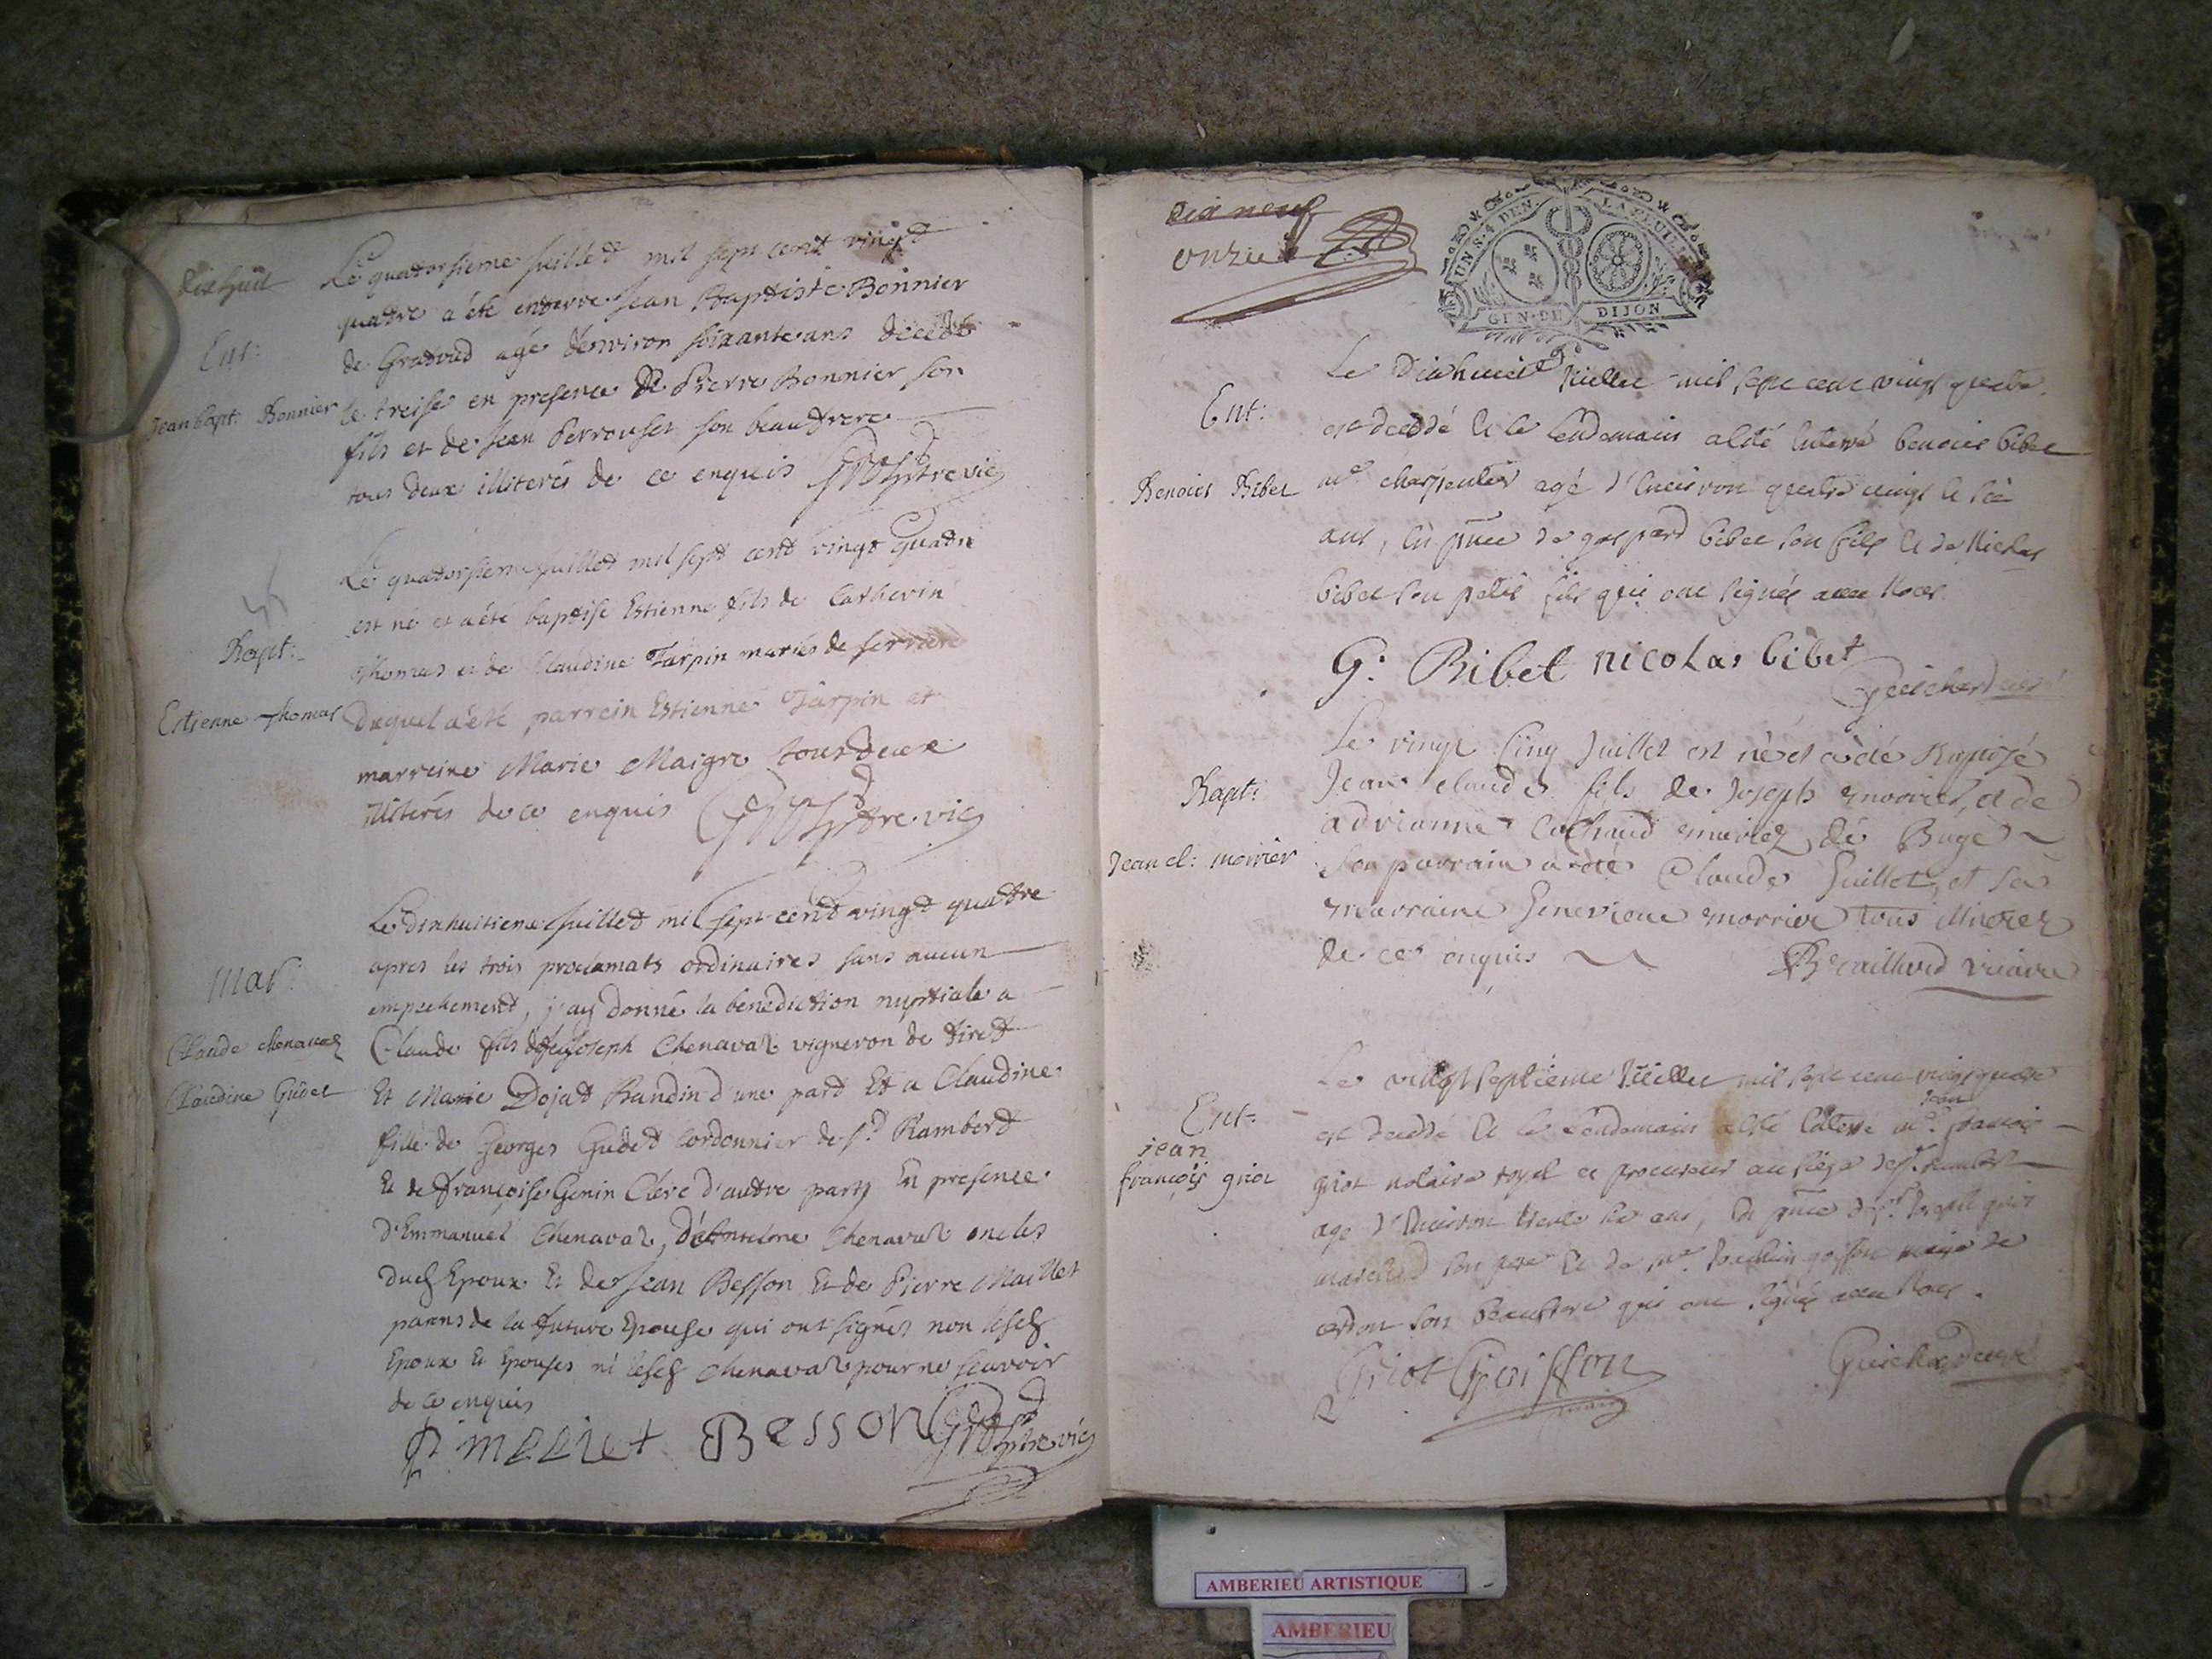 dixhuit
Ent:
Jean bapt: Bonnier
Le quatorsieme juillet mil sept cent vingt
quatre a été enterre Jean Baptiste Bonnier
de Gratoud agé denviron soixante ans décédé
le treise en presence de Pierre Bonnier son
fils et de Jean Perrouset son beaufrere
tous deux illiterés de ce enquis
Bapt:
Estienne Thomas
Le quatorsieme juillet mil sept cent vingt quatre
est né et a été baptise Estienne fils de Catherin
Thomas et de Claudine Tarpin mariés de serriere
duquel a été parrein Estienne Tarpin et
marreine Marie Maigre tous deux
illiterés de ce enquis
Mar:
Claude chenavaz
Claudine Gudet
Le dixhuitieme juillet mil sept cent vingt quatre
apres les trois proclamats ordinaires sans aucun
empechement, j'ay donné la benediction nuptiale a
Claude fils de feu Joseph Chenavaz vigneron de tiret
Et Marie Dojat Bandin d'une part Et a Claudine
fille de Georges Gudet cordonnier de st Rambert
Et de françoise Genin Clerc d'autre part En presence
d'Emmanuel Chenavaz, d'Antelme Chenavaz oncles
dud Epoux Et de Jean Besson Et de Pierre Maillet
parens de la future Epouse qui ont signés non lesd
Epoux Et Epouses ni lesd Chenavaz pour ne scavoir
de ce enquis
P maliet Besson
dix neuf
onzie
UN S. 4 DEN. LA FEUILLE
GEN. DE DIJON
Ent:
Benoict Bibet
Le Dixhuit Juillet mil sept cent vingt quatre
est decedé et le lendemain a été enterré benoict bibet
me charpentier agé d'environ quatre vingt et six
ans, en pnce de gaspard bibet son fils et de Nicolas
bibet son petit fils qui ont signés avec Nous
G: Bibet nicolas bibet
Guichard curé
Bapt:
Jean cl: morrier
Le vingt cinq Juillet est né et a été Baptisé
Jean claude fils de Joseph morrier, et de
adrianne Cochaud mariez de Bugé
son parrain a été Claude Juillet, et sa
marraine Genevieve morrier tous illiterez
de ce enquis
Brailhard vicaire
Ent:
jean
françois griot
Le vingt septieme Juillet mil sept cent vingt quatre
est decedé et le lendemain a été enterré me Jean francois
griot notaire royal et procureur au siege de st rambert
agé d'environ trente six ans, en pnce de sr Joseph griot
marchand son pere et de me Joachim goiffon maire de
cerdon son beaufrere qui ont signés avec Nous.
Griot Goiffon
maire
Guichard curé
AMBERIEU ARTISTIQUE
AMBERIEU